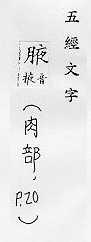 五經文字
腋
音掖
（肉部，P.20）